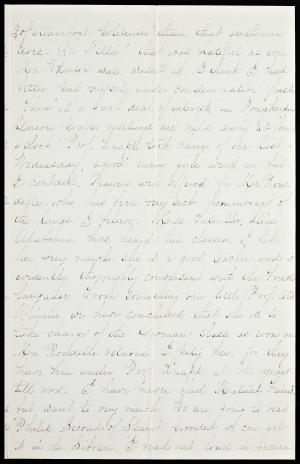 of steamboat holiness than that gentleman
does. Oh Millie! that was hateful as ever
Mr. Wheaton's was, wasn't it. I think I had
better put myself under condemnation first.
There is a great deal of interest in Poughkeepsie
Union prayer meetings are held daily at four
o'clock. Prof. Knapp took charge of one last
Wednesday, a good many girls went in but
I couldn't. Prayers were offered for Mr. Row-
who has been very sick from hemorrhage of
the lungs I believe. Miss
Alabama has heard his classes, I like
her very much she is a good teacher, and is
evidently thoroughly conversant with the French
language. From something our little Prof. told
Minnie we have concluded that she is to
take charge of the German class as soon as
Mr. returns. I pity her, for they
have been under Prof. Knapp all the year
till now. I have never read Mutual Friend,
but want to very much. We are going to read
Philip Second of Spain provided we can get
it in the Library. I read out loud in